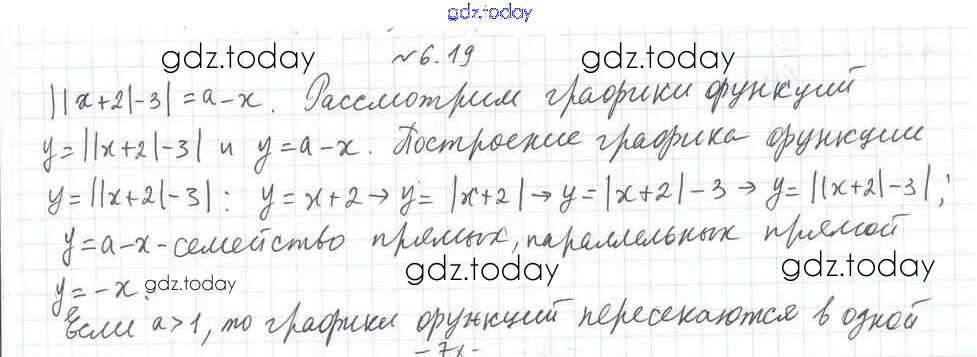 gdz.today
№6.19
gdz.today gdz.today
||x+2|-3|=a-x. Рассмотрим графики функций
y=||x+2|-3| и y=a-x. Построение графика функции
y=||x+2|-3|: y=x+2→y=|x+2|→y=|x+2|-3→y=||x+2|-3|;
y=a-x-семейство прямых, параллельных прямой
gdz.today gdz.today
y=-x. gdz.today
Если a>1, то графики функций пересекаются в одной